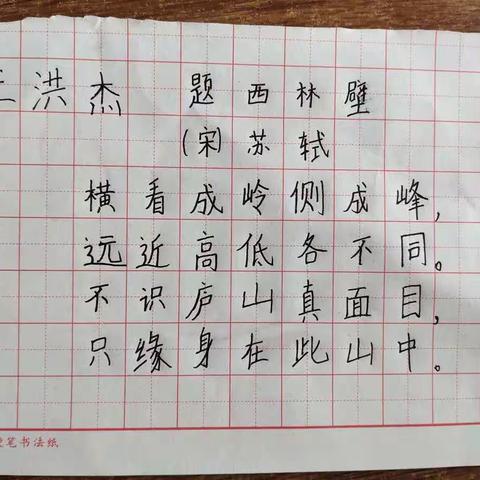 洪杰 题西林壁
(宋)苏轼
横看成岭侧成峰,
远近高低各不同。
不识庐山真面目,
只缘身在此山中。
笔书法纸